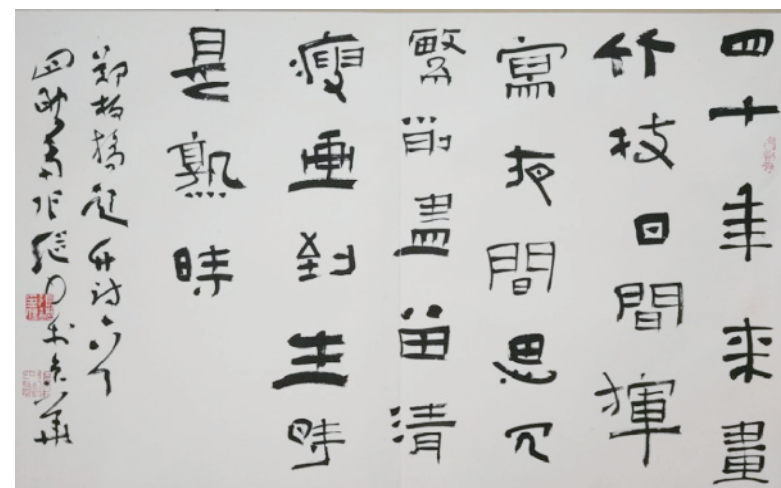 四十年来畫
竹枝日間揮
寫夜間思冗
繁削盡留清
瘦画到生時
是熟時
鄭板橋題竹詩
於京華